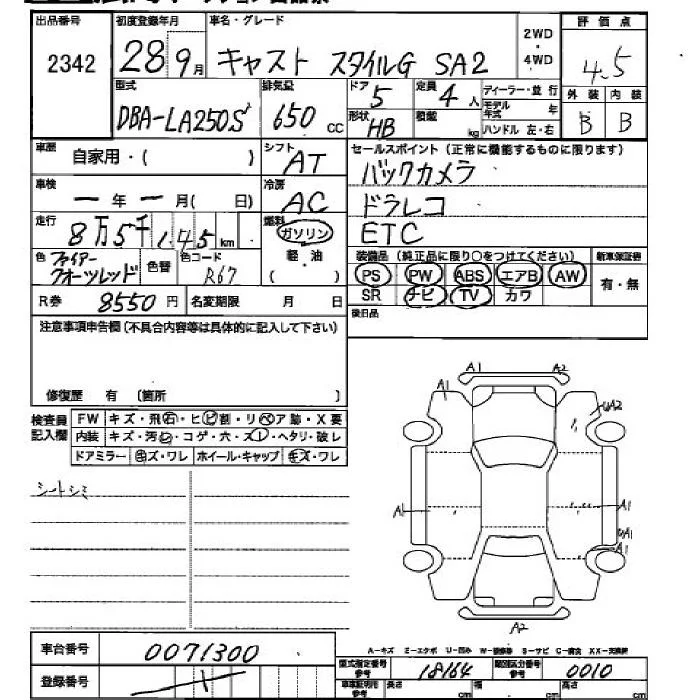 出品番号 初度登録年月 車名・グレード 2WD・4WD 評価点
2342 28年9月 キャスト スタイルG SA2 4.5
型式 排気量 ドア 定員 ディーラー・並行 外装 内装
DBA-LA250S 650cc 5 4人 モデル年式 年 B B
形状 HB 積載 kg ハンドル 左・右
車歴 自家用・( ) シフト AT セールスポイント(正常に機能するものに限ります)
バックカメラ
車検 ー年ー月( 日) 冷房 AC ドラレコ
走行 8万5千145km 燃料 ガソリン ETC
軽油
( )
色 ファイアークォーツレッド 色替 色コード R67
装備品(純正品に限り○をつけてください) 新車保証書
PS PW ABS エアB AW 有・無
SR ナビ TV カワ
R券 8550円 名変期限 月 日 後日品
注意事項申告欄(不具合内容等は具体的に記入して下さい)
修復歴 有 〔箇所 〕
検査員記入欄 FW キズ・飛石・ヒビ割・リペア跡・X要
内装 キズ・汚レ・コゲ・穴・スレ・ヘタリ・破レ
ドアミラー キズ・ワレ ホイール・キャップ キズ・ワレ
シートシミ
A1 A2
A1 UA2
A1 A1
UA1
A1
A2
A-キズ E-エクボ U-凹み W-補修跡 S-サビ C-腐食 XX-交換済
車台番号 0071300
型式指定番号 参考 18164 類別区分番号 参考 0010
登録番号
車庫証明用 参考 長さ cm 幅 cm 高さ cm